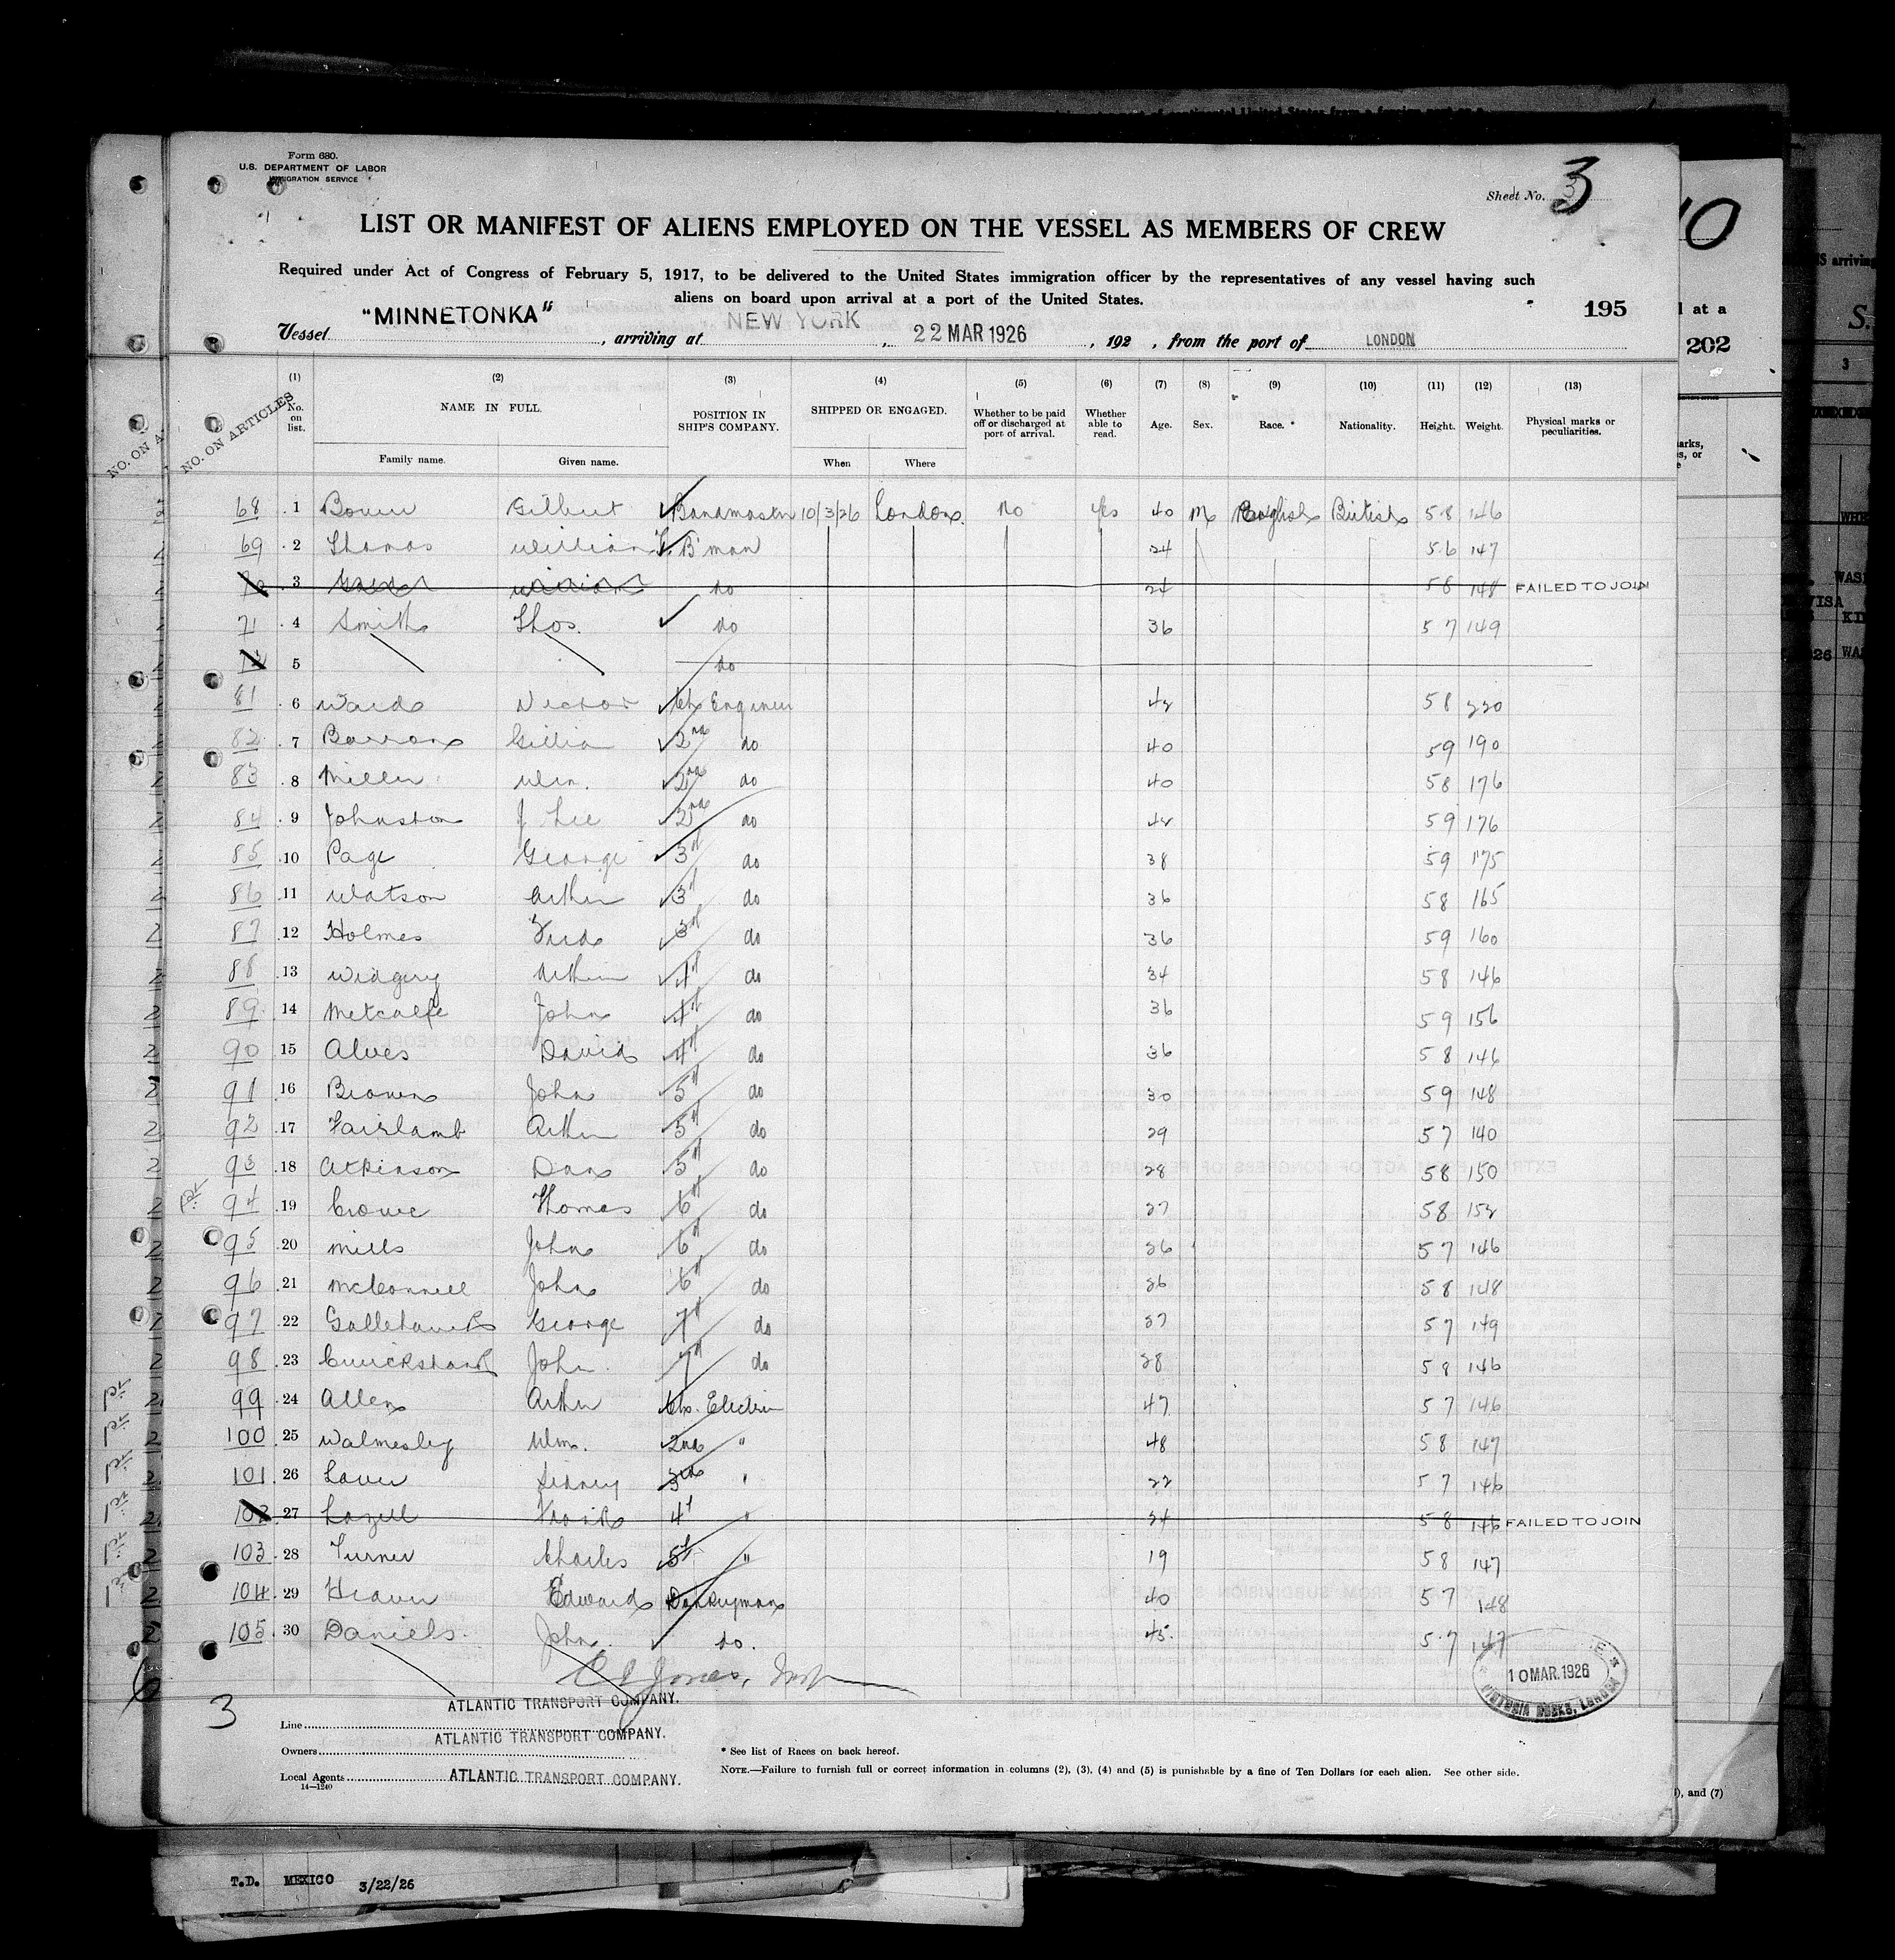 Form 680.
U.S. DEPARTMENT OF LABOR
IMMIGRATION SERVICE
Sheet No. 3
LIST OR MANIFEST OF ALIENS EMPLOYED ON THE VESSEL AS MEMBERS OF CREW
Required under Act of Congress of February 5, 1917, to be delivered to the United States immigration officer by the representatives of any vessel having such
aliens on board upon arrival at a port of the United States.
195
Vessel "MINNETONKA", arriving at NEW YORK, 22 MAR 1926, 192 , from the port of LONDON
NO. ON ARTICLES.
(1) (2) (3) (4) (5) (6) (7) (8) (9) (10) (11) (12) (13)
No. on list. NAME IN FULL. POSITION IN SHIP'S COMPANY. SHIPPED OR ENGAGED. Whether to be paid off or discharged at port of arrival. Whether able to read. Age. Sex. Race. * Nationality. Height. Weight. Physical marks or peculiarities.
Family name. Given name. When Where
68 1 Gilbert Bandmaster 10/3/26 London no yes 40 M English British 5 8 146
69 2 Thomas William B'man 24 5 6 147
3 do 24 5 8 148 FAILED TO JOIN
71 4 Smith Thos. do 36 5 7 149
72 5 do
81 6 Ward Ch Engineer 42 5 8 220
82 7 Barron 2nd do 40 5 9 190
83 8 Miller Wm. 2nd do 40 5 8 176
84 9 Johnston J Lee 2nd do 42 5 9 176
85 10 Page George 3rd do 38 5 9 175
86 11 Watson Arthur 3rd do 36 5 8 165
87 12 Holmes Fred 3rd do 36 5 9 160
88 13 Widgery Arthur 4th do 34 5 8 146
89 14 Metcalfe John 4th do 36 5 9 156
90 15 Alves David 4th do 36 5 8 146
91 16 Brown John 5th do 30 5 9 148
92 17 Fairlamb Arthur 5th do 29 5 7 140
93 18 Atkinson Dan 5th do 28 5 8 150
94 19 Crowe Thomas 6th do 27 5 8 152
95 20 Mills John 6th do 26 5 7 146
96 21 McConnell John 6th do 26 5 8 148
97 22 George 7th do 27 5 7 149
98 23 Cruickshank John 7th do 28 5 8 146
99 24 Allen Arthur Ch. Electrin 47 5 7 146
100 25 Walmesley Wm. 2nd " 48 5 8 147
101 26 Sidney 3rd " 22 5 7 146
102 27 Lazell Frank 4th " 24 5 8 146 FAILED TO JOIN
103 28 Turner Charles 5th " 19 5 8 147
104 29 Edward Donkeyman 40 5 7 148
105 30 Daniels John do. 45 5 7 147
Jones, Insp
10 MAR. 1926
VICTORIA DOCKS, LONDON
3
Line ATLANTIC TRANSPORT COMPANY.
Owners ATLANTIC TRANSPORT COMPANY.
Local Agents ATLANTIC TRANSPORT COMPANY.
14—1240
* See list of Races on back hereof.
NOTE.—Failure to furnish full or correct information in columns (2), (3), (4) and (5) is punishable by a fine of Ten Dollars for each alien. See other side.
10
d at a
202
), and (7)
T.D. MEXICO 3/22/26